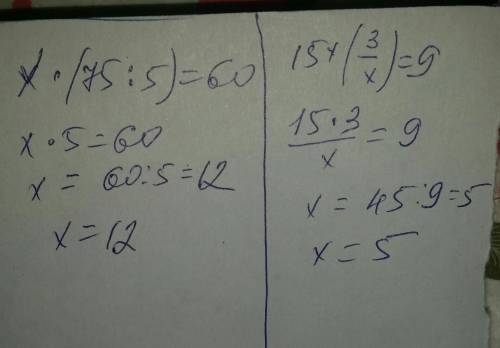 x · (75 : 5) = 60
x · 5 = 60
x = 60 : 5 = 12
x = 12
15 * (3/x) = 9
15 · 3 / x = 9
x = 45 : 9 = 5
x = 5